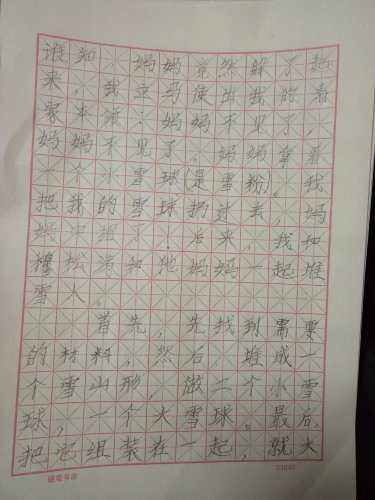 谁知，妈妈竟然躲了起
来，我立马使出我的看
家本领：妈妈不见了，
妈妈不见了。妈妈拿着
一个小雪球(是雪粉)。我
把我的雪球扔过去，妈
妈中招了！后来，我和
穆松涛和他妈妈一起堆
雪大。
首先，先找到需要
的材料，然后，堆成一
个雪山形，做二个小雪
球，一个大雪球。最后，
把它组装在一起，就大
硬笔书法